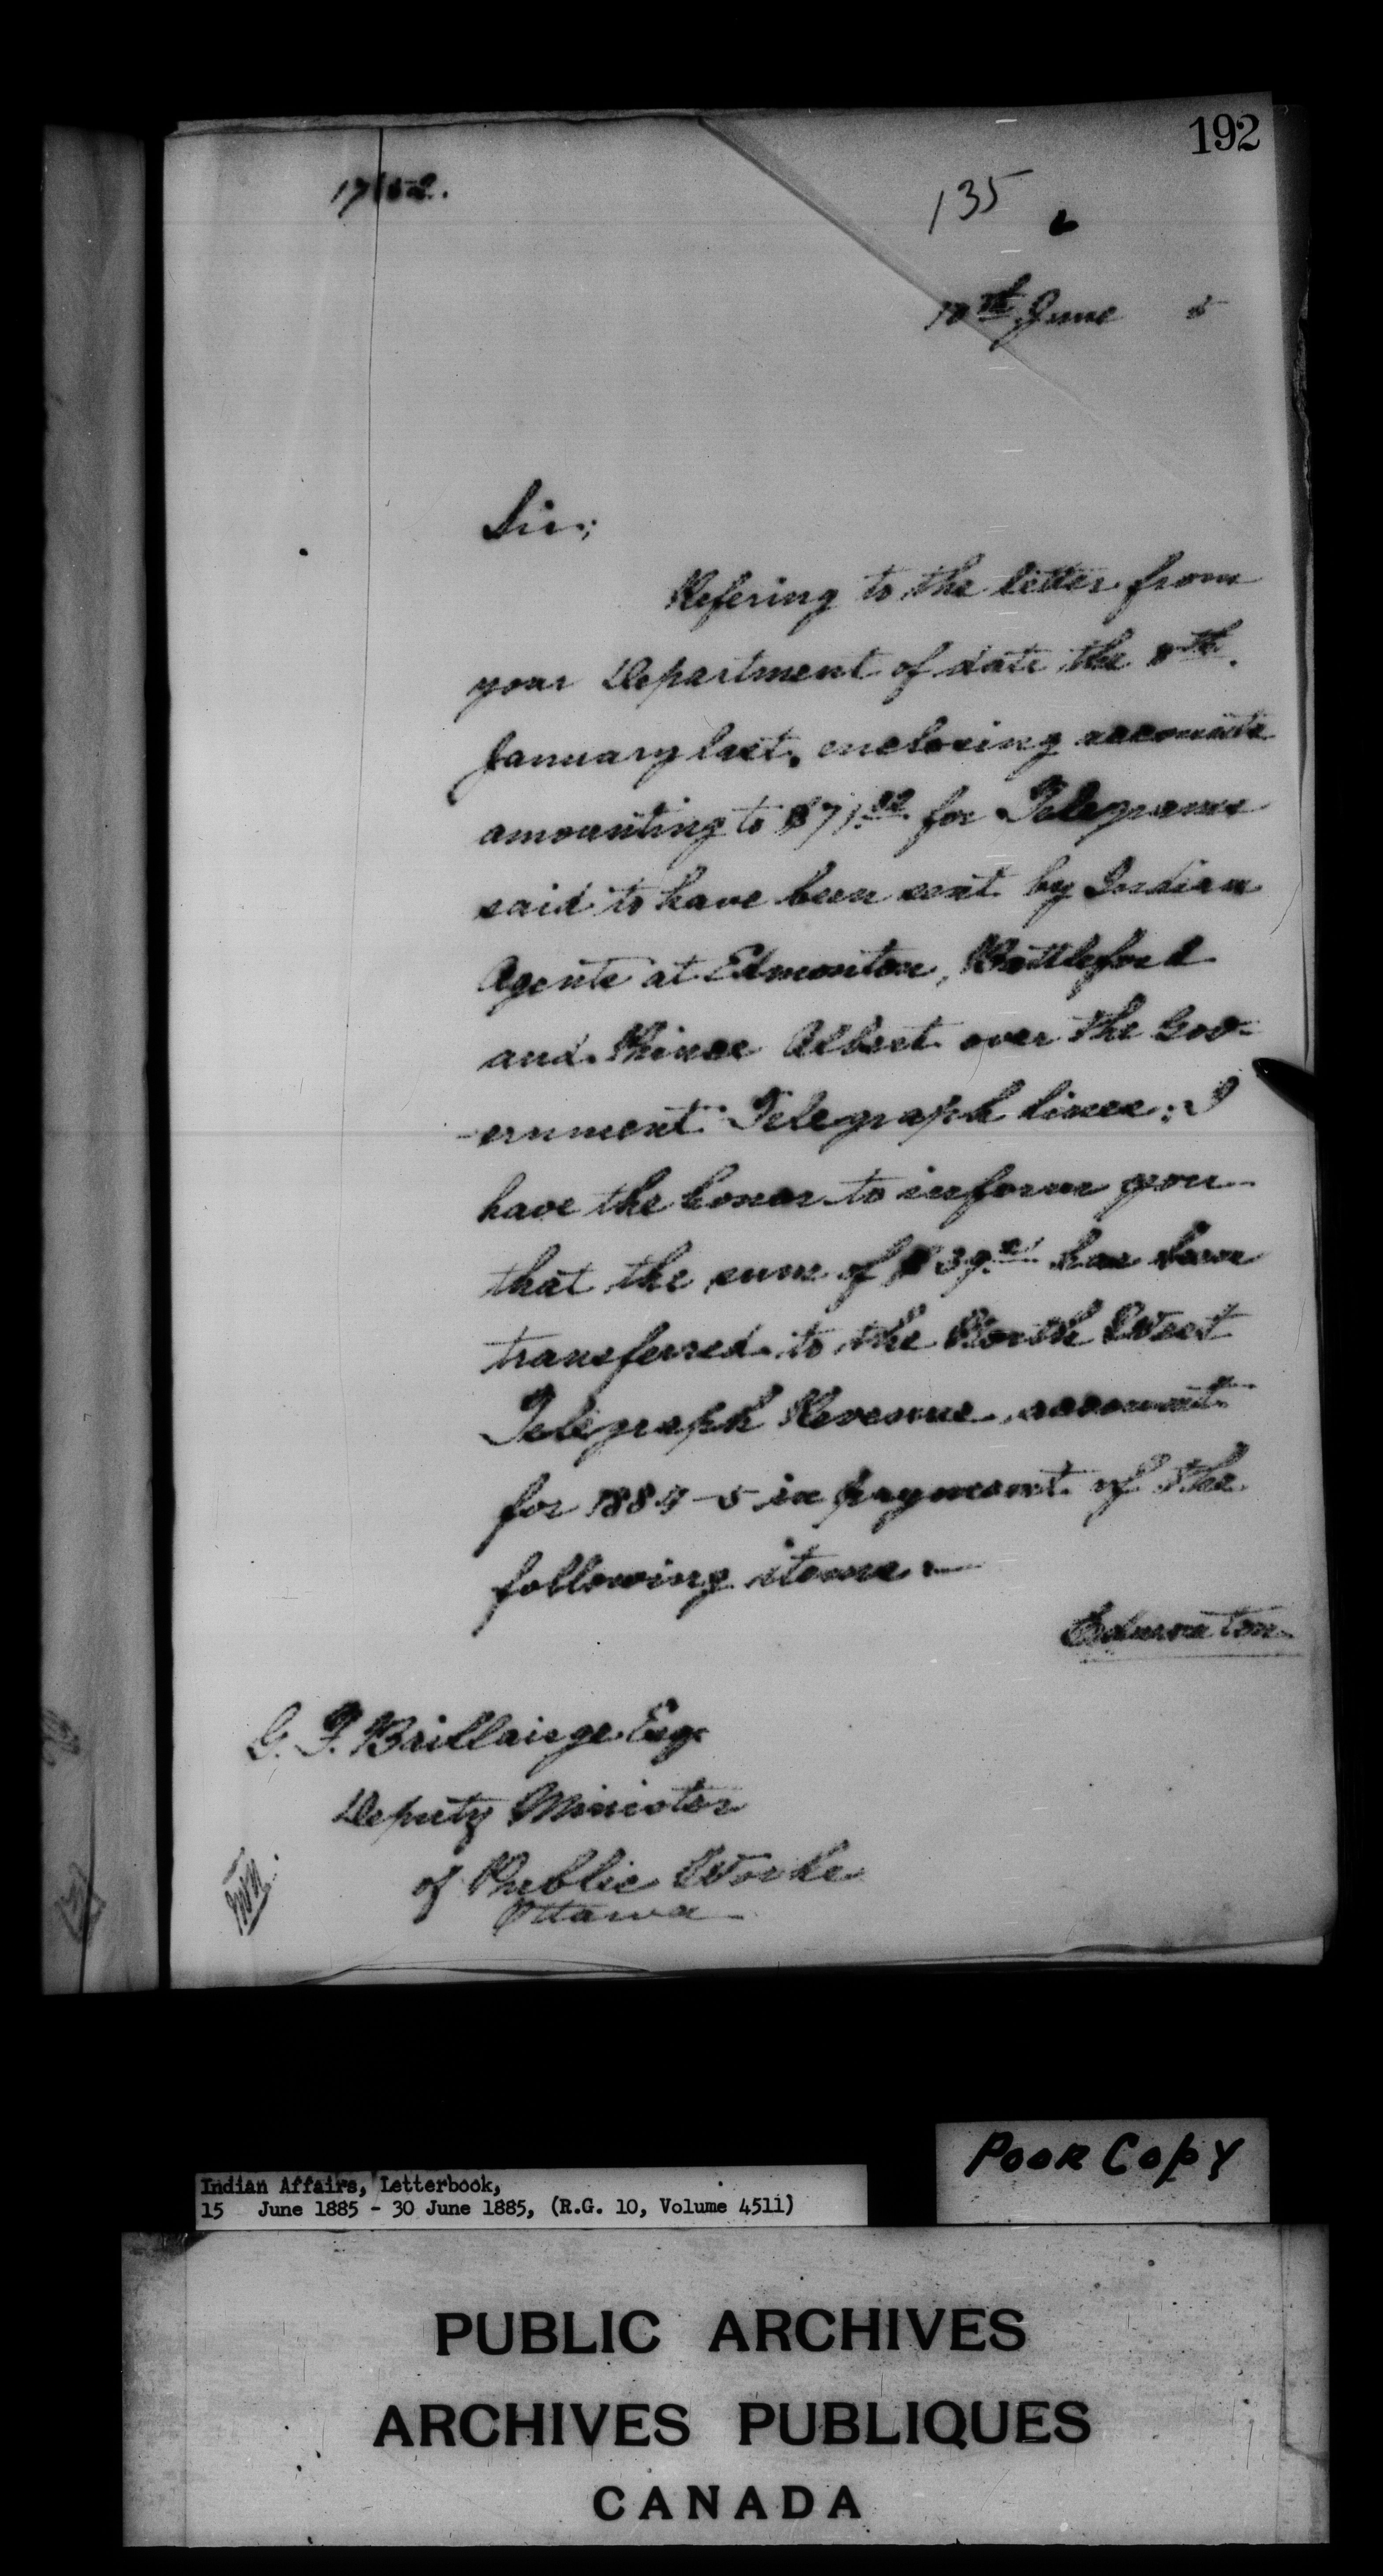 192
135
June 5
Sir;
Refering to the letter from
your Department of date the 8th.
January last, enclosing accounts
amounting to $71. for Telegrams
said to have been sent by Indian
Agents at Edmonton, Battleford
and Prince Albert over the Gov-
-ernment Telegraph lines; I
have the honor to inform you
that the sum of $39. has been
transferred to the North West
Telegraph Revenue account
for 1884-5 in payment of the
following items.—
Edmonton
G. F. Baillairge Esq.
Deputy Minister
of Public Works
Ottawa
Poor Copy
Indian Affairs, Letterbook,
15 June 1885 - 30 June 1885, (R.G. 10, Volume 4511)
PUBLIC ARCHIVES
ARCHIVES PUBLIQUES
CANADA